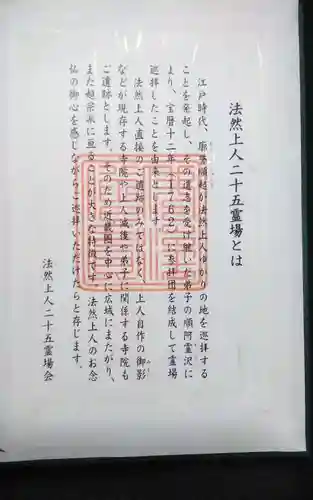 法然上人二十五霊場とは
江戸時代、廓誉順起が法然上人ゆかりの地を巡拝する
ことを発起し、その遺志を受け継いだ弟子の順阿霊沢に
より、宝暦十二年（1762）に参拝団を結成して霊場
巡拝したことを由来とします。
法然上人直接のご遺跡のみではなく、上人自作の御影
などが現存する寺院や上人滅後や弟子に関係する寺院も
ご遺跡とします。そのため近畿圏を中心に広域にまたがり、
また超宗派に亘ることが大きな特徴です。法然上人のお念
仏の御心を感じながらご巡拝いただけたらと存じます。
法然上人二十五霊場会